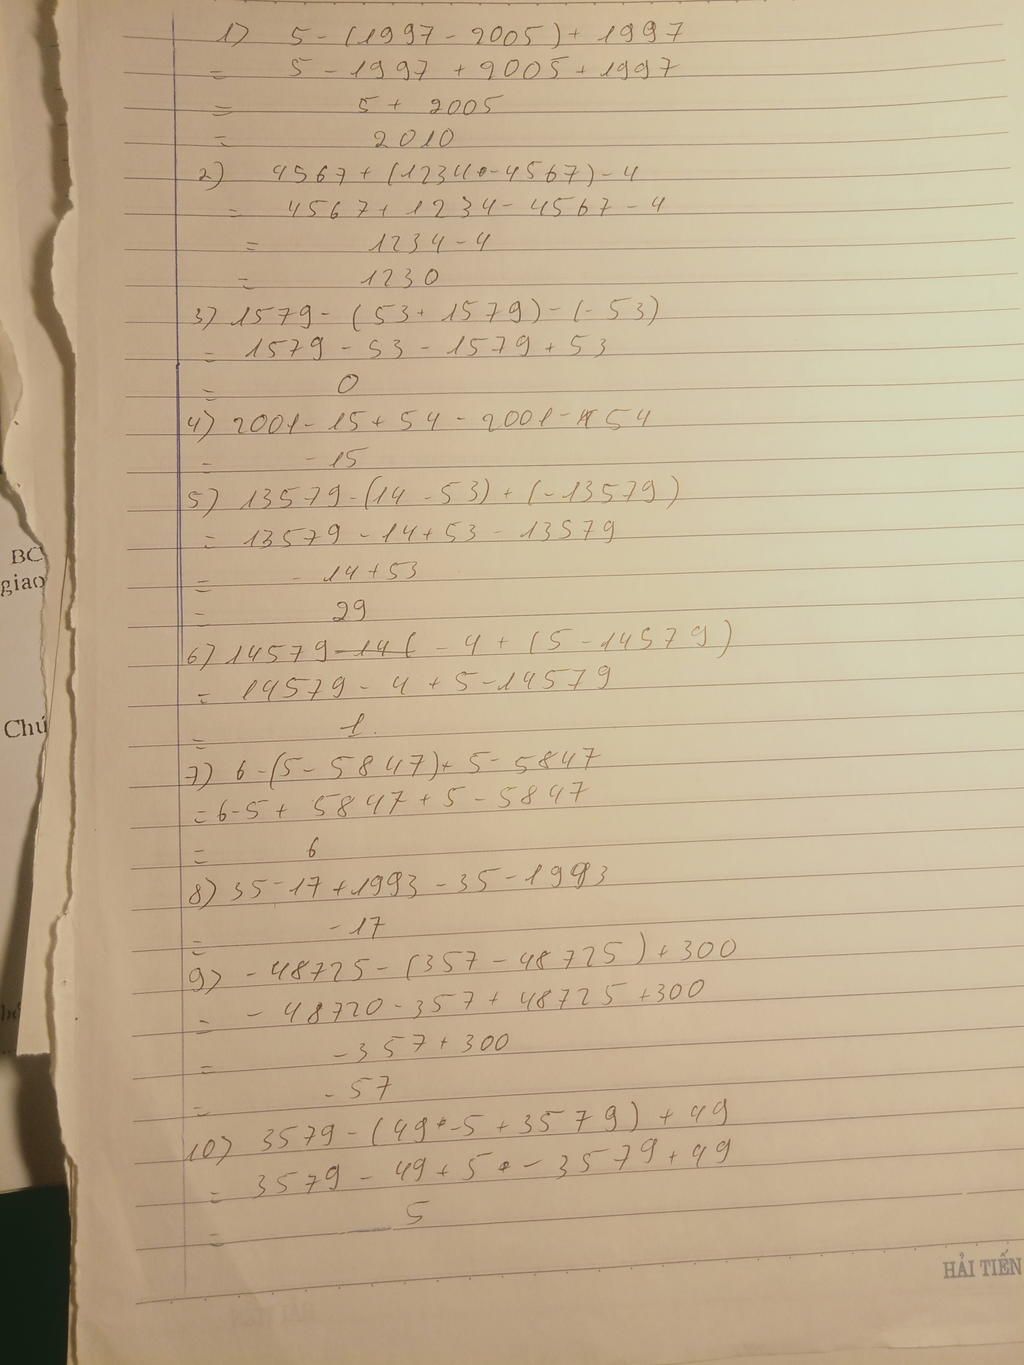 1) 5 - (1997 - 2005) + 1997
= 5 - 1997 + 2005 + 1997
= 5 + 2005
= 2010
2) 4567 + (1234 - 4567) - 4
= 4567 + 1234 - 4567 - 4
= 1234 - 4
= 1230
3) 1579 - (53 + 1579) - (- 53)
= 1579 - 53 - 1579 + 53
= 0
4) 2001 - 15 + 54 - 2001 - 54
= - 15
5) 13579 - (14 - 53) + (- 13579)
= 13579 - 14 + 53 - 13579
= - 14 + 53
= 29
6) 14579 - 4 + (5 - 14579)
= 14579 - 4 + 5 - 14579
= 1.
7) 6 - (5 - 5847) + 5 - 5847
= 6 - 5 + 5847 + 5 - 5847
= 6
8) 35 - 17 + 1993 - 35 - 1993
= - 17
9) - 48725 - (357 - 48725) + 300
= - 48720 - 357 + 48725 + 300
= - 357 + 300
= - 57
10) 3579 - (49 - 5 + 3579) + 49
= 3579 - 49 + 5 - 3579 + 49
= 5
BC
giao
Chú
HẢI TIẾN